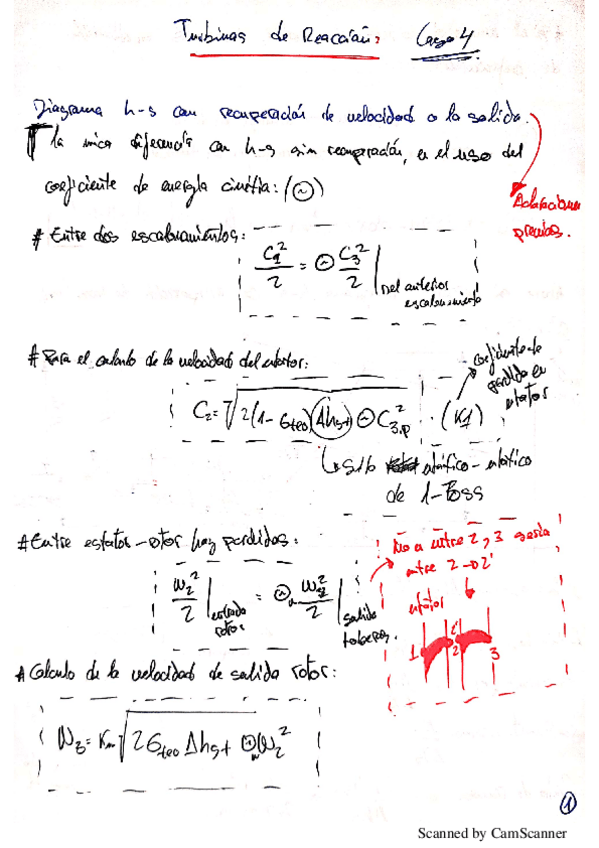 Turbinas de Reacción: Caso 4
Diagrama h-s con recuperación de velocidad a la salida.
la única diferencia con h-s sin recuperación, es el uso del
coeficiente de energía cinética: (~)
Aclaraciones
previas.
# Entre dos escalonamientos:
C₁²/2 = ~ C₃²/2 | Del anterior
escalonamiento
# Para el calculo de la velocidad del estator:
coeficiente de
perdida en
estator
C₂ = √2(1-Gteo)(Δhs+) ~ C₃,p² · (K1)
↳ Salto estático-estático
de 1-Foss
# Entre estator-rotor hay perdidas:
W₂²/2 | entrada
rotor = ~ W₂²/2 | salida
toberas.
No a entre 2, 3 seria
entre 2 → 2'
estator
1 2' 2 3
# Calculo de la velocidad de salida rotor:
W₃ = Km √2Gteo Δhs+ ~ W₂²
1
Scanned by CamScanner